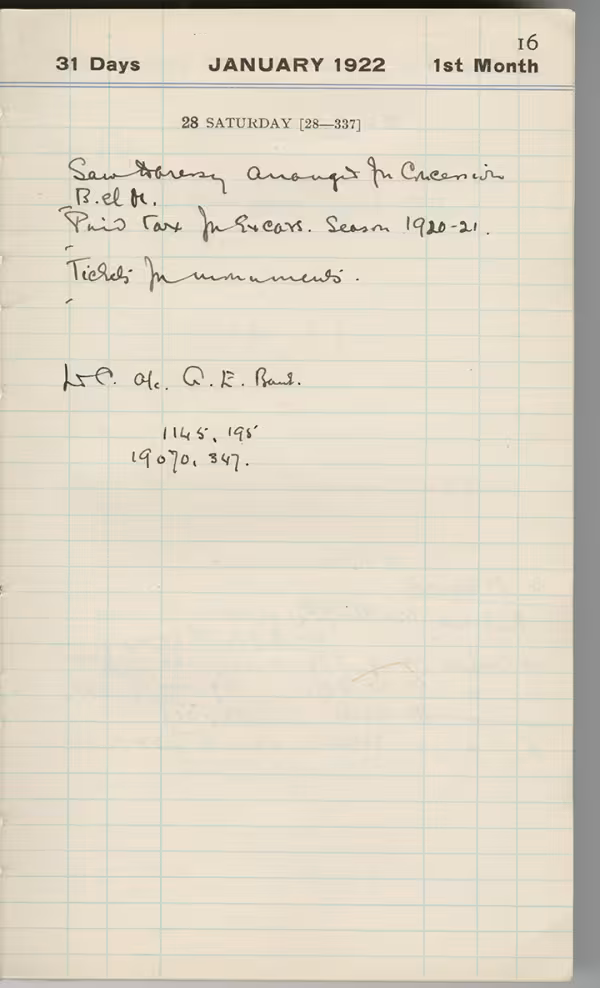 16
31 Days JANUARY 1922 1st Month
28 SATURDAY [28—337]
Saw arranged for Concession
B. el M.
Paid Tax for Excavs. Season 1920-21.
Tickets for monuments.
Ld C. a/c. A. E. Bank.
1145.195
19070.347.